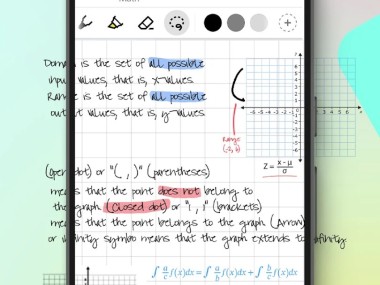 Domain is the set of all possible
input values, that is, x-values
Range is the set of all possible
output values, that is, y-values
Range
z = x-μ / σ
(open dot) or "( , )" (parentheses)
means that the point does not belong to
the graph (closed dot) or "[ , ]" (brackets)
means that the point belongs to the graph (Arrow)
or infinity symbol means that the graph extends to infinity
∫ᵃ꜀ f(x)dx = ∫ᵃ_b f(x)dx + ∫ᵇ꜀ f(x)dx